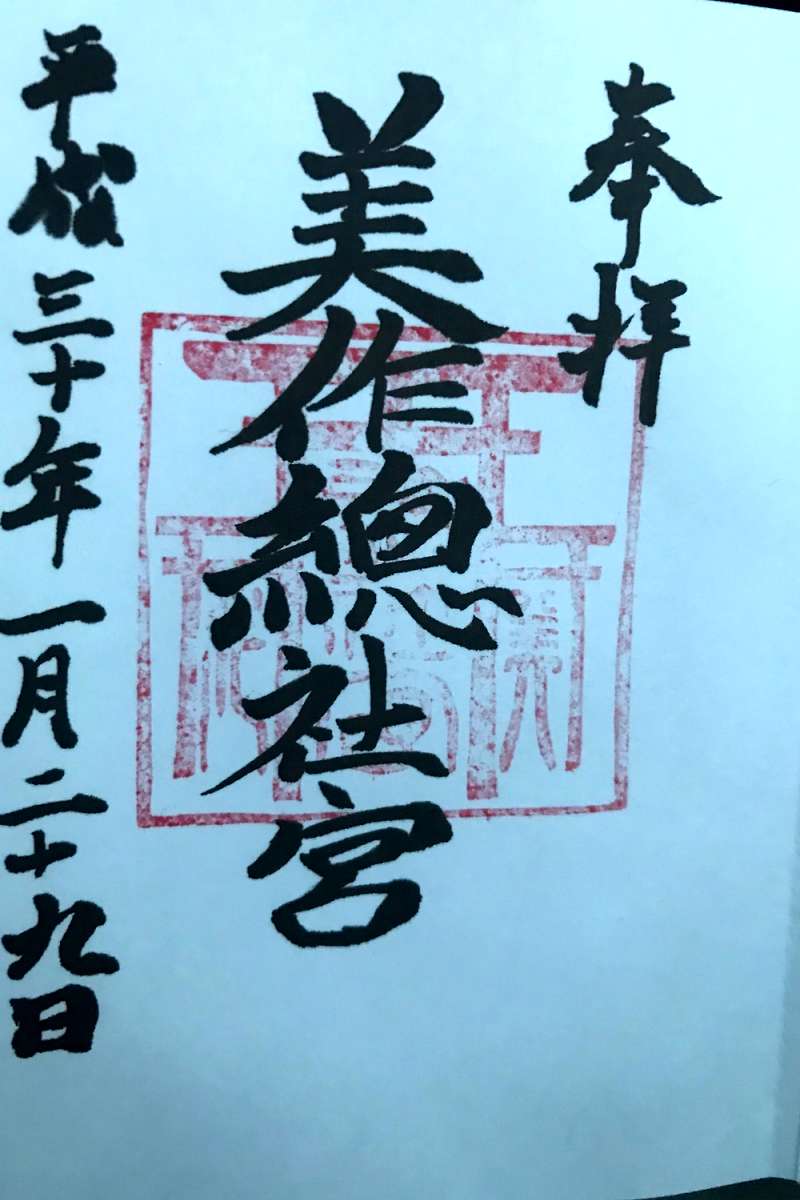 奉拝
美作總社宮
平成三十年一月二十九日